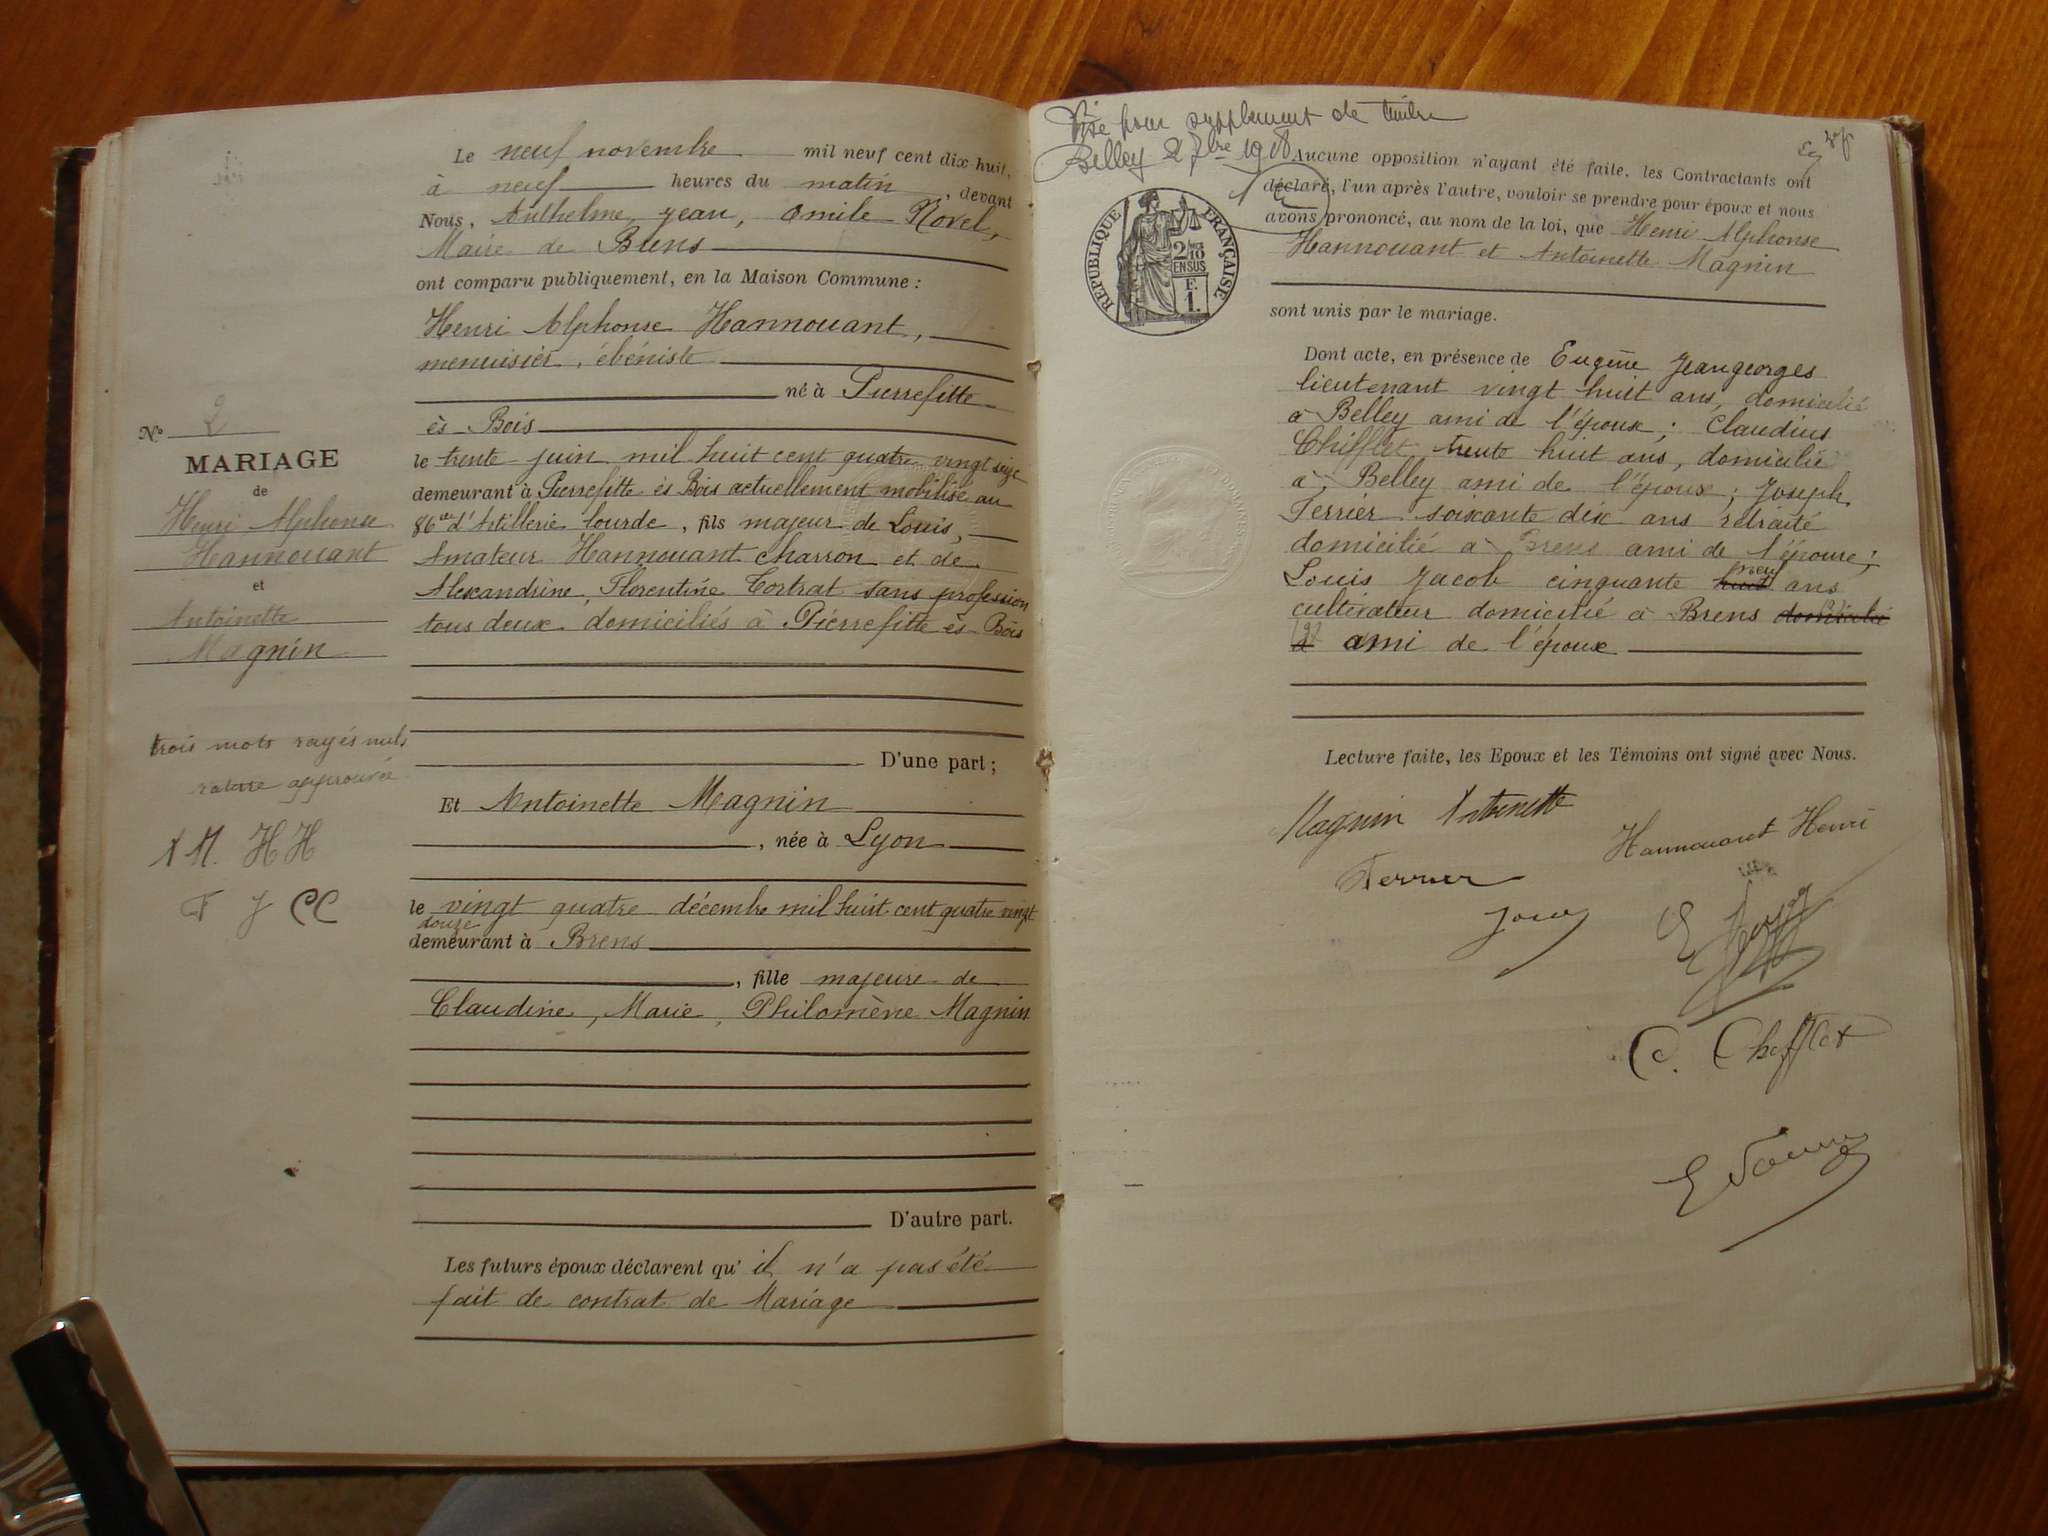 Le neuf novembre mil neuf cent dix-huit,
à neuf heures du matin, devant
Nous, Anthelme, Jean, Emile Rovel,
Maire de Brens
ont comparu publiquement, en la Maison Commune :
Henri Alphonse Hannouant,
menuisier, ébéniste
né à Pierrefitte
ès-Bois
le trente juin mil huit cent quatre vingt seize
demeurant à Pierrefitte ès Bois actuellement mobilisé au
86e d'Artillerie lourde, fils majeur de Louis,
Amateur Hannouant charron et de
Alexandrine, Florentine Cortrat sans profession
tous deux domiciliés à Pierrefitte ès-Bois
D'une part ;
Et Antoinette Magnin
, née à Lyon
le vingt quatre décembre mil huit cent quatre vingt
douze
demeurant à Brens
, fille majeure de
Claudine, Marie, Philomène Magnin
D'autre part.
Les futurs époux déclarent qu'il n'a pas été
fait de contrat de Mariage
No 2
MARIAGE
de
Henri Alphonse
Hannouant
et
Antoinette
Magnin
trois mots rayés nuls
rature approuvée
A M. H H
F J CC
Visé pour supplément de timbre
Belley 2 7bre 1918
RÉPUBLIQUE FRANÇAISE
2/10
EN SUS
F.
1.
Aucune opposition n'ayant été faite, les Contractants ont
déclaré, l'un après l'autre, vouloir se prendre pour époux et nous
avons prononcé, au nom de la loi, que Henri Alphonse
Hannouant et Antoinette Magnin
sont unis par le mariage.
Dont acte, en présence de Eugène Jeangeorges
lieutenant vingt huit ans, domicilié
à Belley ami de l'époux ; Claudius
Chifflet trente huit ans, domicilié
à Belley ami de l'époux ; Joseph
Ferrier soixante dix ans retraité
domicilié à Brens ami de l'épouse ;
Louis Jacob cinquante huit neuf ans
cultivateur domicilié à Brens domicilié
à ami de l'époux
Lecture faite, les Epoux et les Témoins ont signé avec Nous.
Magnin Antoinette
Hannouant Henri
Ferrier
C. Chifflet